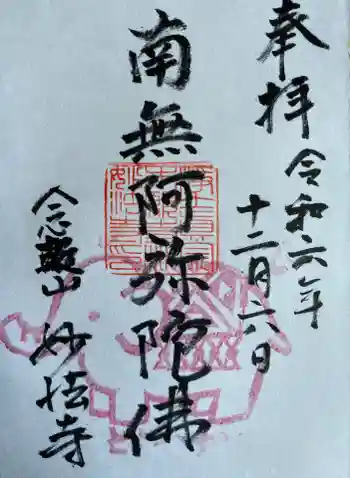 奉拝
令和六年
十二月六日
南無阿弥陀佛
念敬山
妙法寺